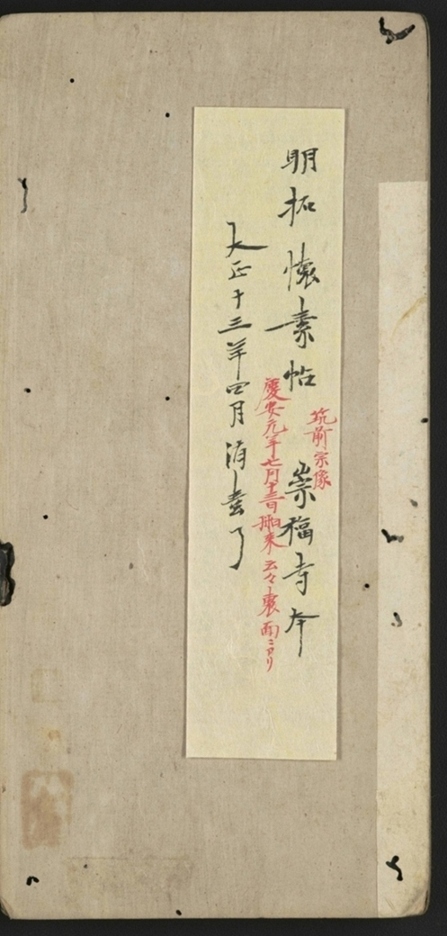 明拓 懐素帖 崇福寺本
筑前宗像
慶安元年七月十三日 来 云々裏面ニアリ
大正十三年四月 了